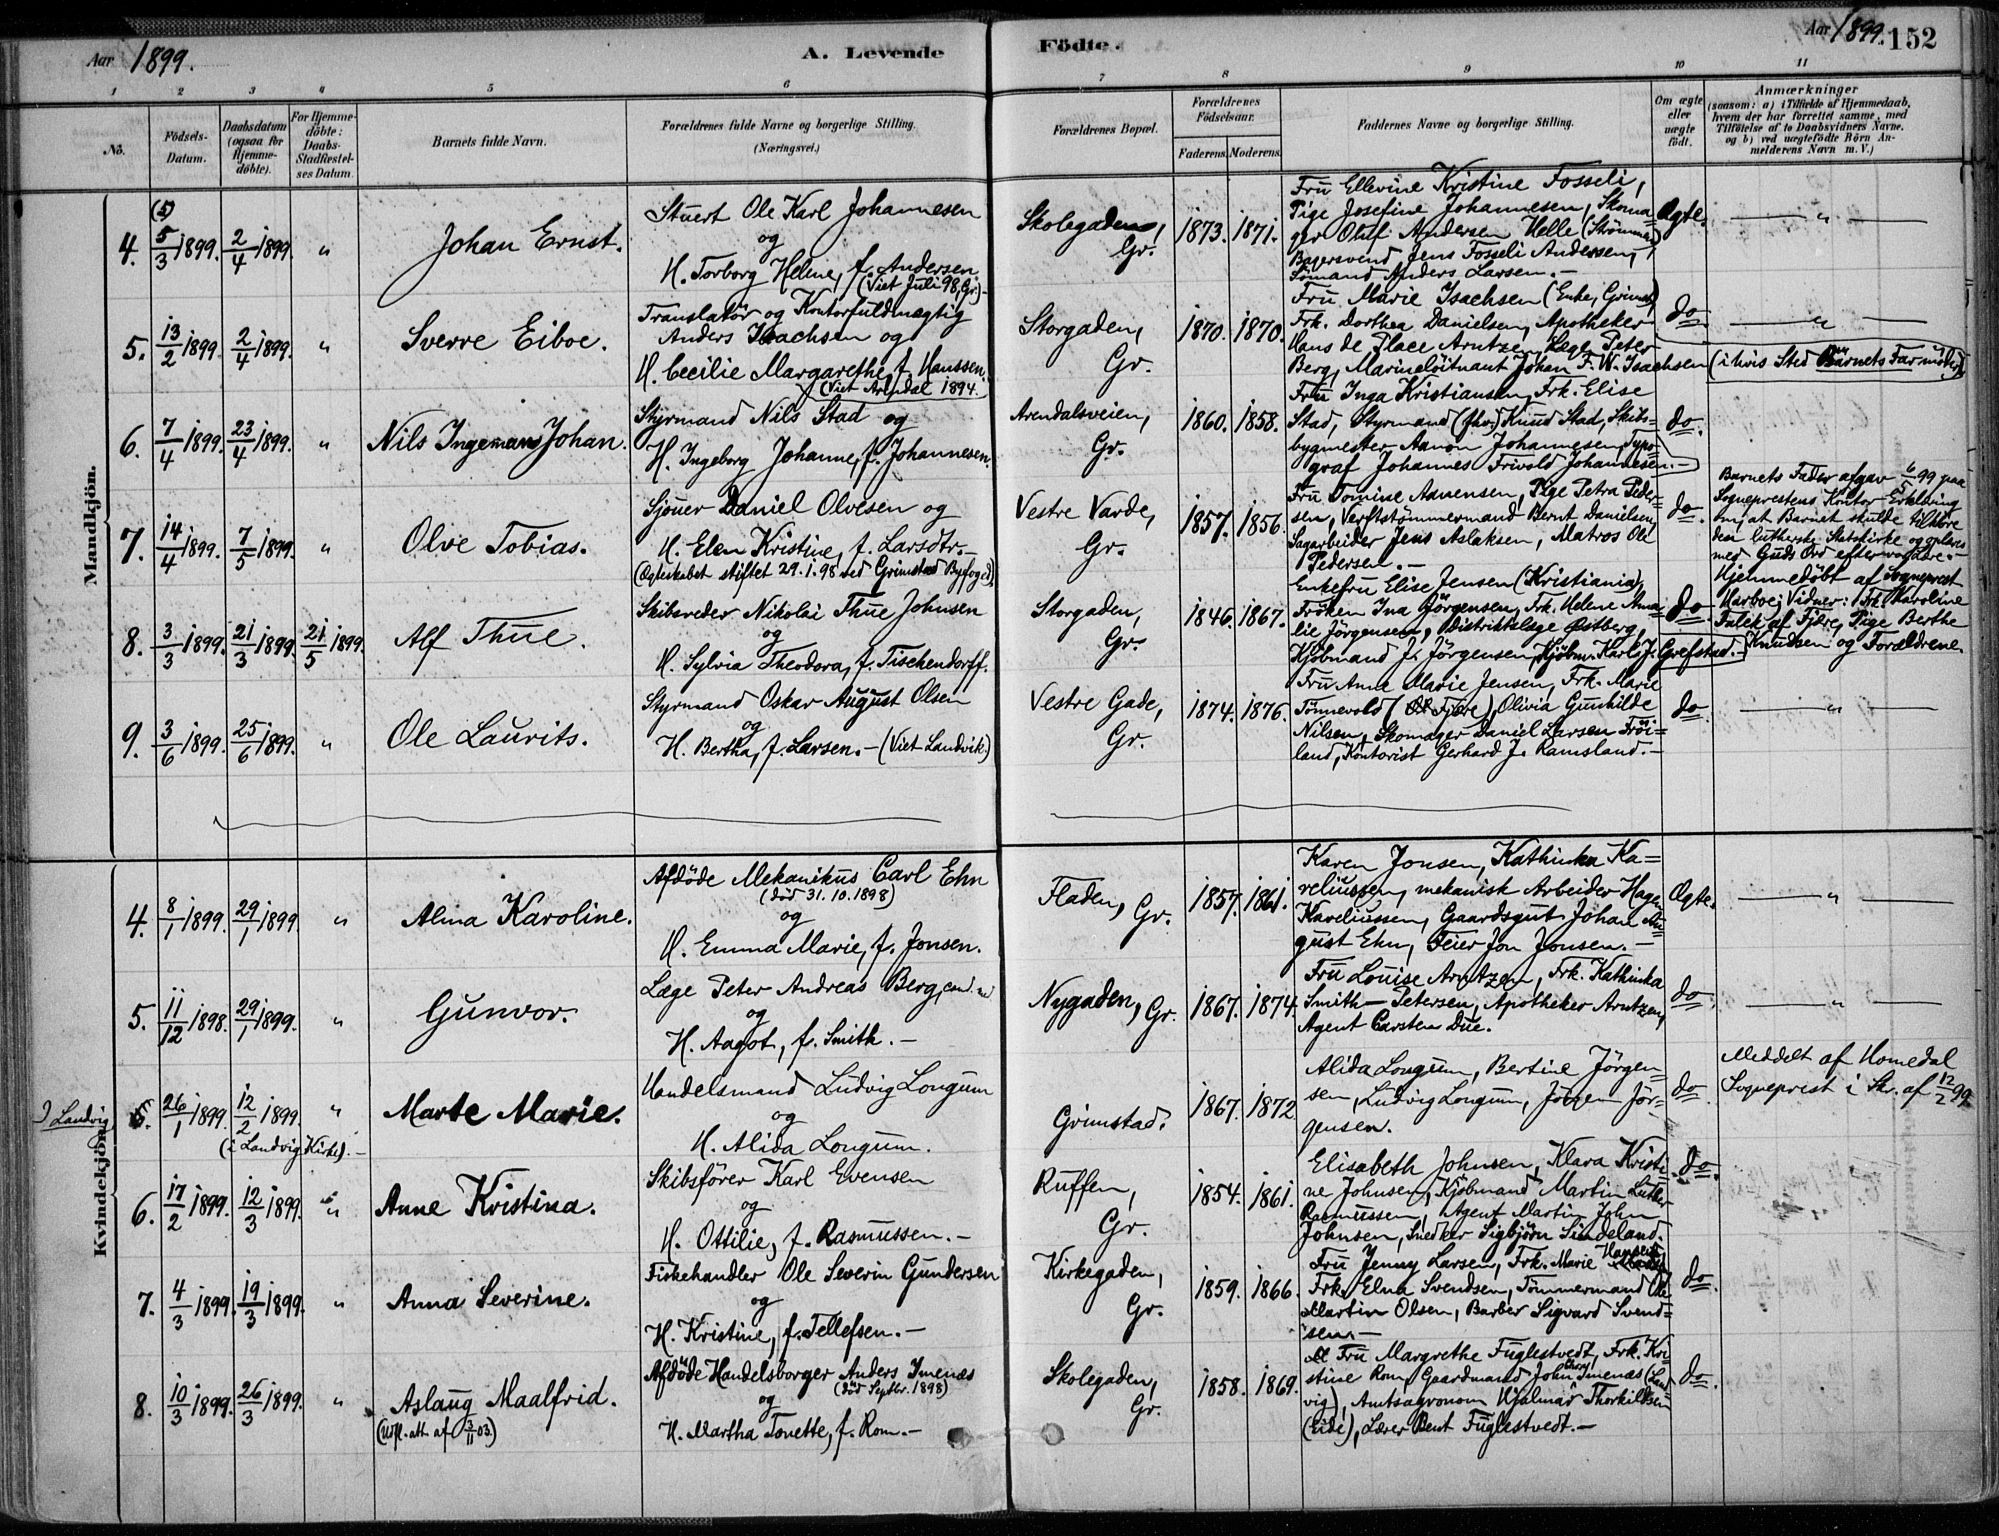 Aar 1899.
A. Levende
Födte.
Aar 1899. 152
1 2 3 4 5 6 7 8 9 10 11
No.
Födsels-Datum.
Daabsdatum (ogsaa for Hjemme-döbte).
For Hjemme-döbte: Daabs-Stadfæstel-ses Datum.
Barnets fulde Navn.
Forældrenes fulde Navne og borgerlige Stilling.
(Næringsvei.)
Forældrenes Bopæl.
Forældrenes Födselsaar.
Faderens. Moderens.
Faddernes Navne og borgerlige Stilling.
Om ægte eller uægte födt.
Anmærkninger
(saasom: a) i Tilfælde af Hjemmedaab, hvem der har forrettet samme, med Tilföielse af to Daabsvidners Navne, og b) ved uægtefödte Börn An-melderens Navn m. V.)
Mandkjön.
4. 5/3 1899. 2/4 1899. "
Johan Ernst.
Stuert Ole Karl Johannesen
og
H. Torborg Helene, f. Andersen
(Viet Juli 98, Gr.)
Skolegaden,
Gr.
1873. 1871.
Fru Ellevine Kristine Fosseli,
Pige Josefine Johannesen, Skoma-
ger Oluf Andersen Helle (Strömmen)
Bagersvend Jens Fosseli Andersen,
Sömand Anders Larsen.-
Ægte.
— " —
5. 13/2 1899. 2/4 1899. "
Sverre Eiboe.
Translatör og Kontorfuldmægtig
Anders Isachsen og
H. Cecilie Margarethe, f. Hanssen.
(Viet Arendal 1894.
Storgaden,
Gr.
1870. 1870.
Fru Marie Isachsen (Enke, Grimst)
Frk. Dorthea Danielsen, Apotheker
Hans de Place Arntzen, Læge Peter
Berg, Marinelöitnant Johan F. W. Isachsen
do.
— " —
(i hvis Sted Barnets Farmoder)
6. 7/4 1899. 23/4 1899. "
Nils Ingemann Johan.
Styrmand Nils Stad og
H. Ingeborg Johanne, f. Johannesen.
Arendalsveien,
Gr.
1860. 1858.
Fru Inga Kristiansen, Frk. Elise
Stad, Styrmand (fhv.) Knud Stad, Skibs-
bygmester Aanon Johannesen, Typo-
graf Johannes Frivold Johannesen.-
do.
7. 14/4 1899. 7/5 1899. "
Olve Tobias.
Sjouer Daniel Olvesen og
H. Elen Kristine, f. Larsdtr.-
(Ægteskabet stiftet 29.1.98 ved Grimstad Byfoged)
Vestre Varde,
Gr.
1857. 1856.
Fru Tomine Aanensen, Pige Petra Peder-
sen, Verftstömmermand Bernt Danielsen,
Sagarbeider Jens Aslaksen, Matros Ole
Pedersen.-
do.
Barnets Fader afgav 6/5 99 paa
Sogneprestens Kontor Erklæring
om, at Barnet skulde tilhöre
den lutherske Statskirke og oplæres
med Guds Ord efter vor Lære.-
8. 3/3 1899. 21/3 1899. 21/5 1899.
Alf Thue.
Skibsreder Nikolai Thue Johnsen
og
H. Sylvia Theodora, f. Tischendorff.
Storgaden,
Gr.
1846. 1867.
Enkefru Elise Jensen (Kristiania),
Fröken Ina Jörgensen, Frk. Helene Ama-
lie Jörgensen, Distriktslæge Østberg,
Kjöbmand J. Jörgensen, Kjöbm. Karl J. Grefstad.-
do
Hjemmedöbt af Sogneprest
Harboe; Vidner: Frk. Karoline
Falck af Fjære, Pige Berthe
Knudsen og Forældrene.
9. 3/6 1899. 25/6 1899. "
Ole Laurits.
Styrmand Oskar August Olsen
og
H. Bertha, f. Larsen.- (Viet Landvik.)
Vestre Gade,
Gr.
1874. 1876.
Fru Anna Marie Jensen, Frk. Marie
Tönnevold (Fjære), Olivia Gunhilde
Nilsen, Skomager Daniel Larsen Fröi-
land, Kontorist Gerhard J. Ramsland.-
do.
— " —
Kvindekjön.
4. 8/1 1899. 29/1 1899. "
Alma Karoline.
Afdöde Mekanikus Carl Ehn
(död 31.10.1898)
og
H. Emma Marie, f. Jonsen.
Fladen, Gr.
1857. 1861.
Karen Jonsen, Kathinka Ka-
reliussen, mekanisk Arbeider Hagen
Kareliussen, Gaardsgut Johan Au-
gust Ehn, Feier Jon Jonsen.-
Ægte.
— " —
5. 11/12 1898. 29/1 1899. "
Gunvor.
Læge Peter Andreas Berg, cand. med
og
H. Aagot, f. Smith.-
Nygaden, Gr.
1867. 1874.
Fru Louise Arntzen, Frk. Kathinka
Smith-Petersen, Apotheker Arntzen,
Agent Carsten Due.
do.
— " —
I Landvig
5. 26/1 1899. 12/2 1899. "
(i Landvig Kirke).-
Marte Marie.
Handelsmand Ludvig Longum
og
H. Alida Longum.
Grimstad.
1867. 1872
Alida Longum, Bertine Jörgen-
sen, Ludvig Longum, Jörgen Jör-
gensen.
do.
Meddelt af Homedal
Sogneprest i Skr. af 12/2 99.
6. 17/2 1899. 12/3 1899. "
Anne Kristina.
Skibsförer Karl Evensen
og
H. Ottilie, f. Rasmussen.-
Ruffen,
Gr.
1854. 1861.
Elisabeth Johnsen, Klara Kristi-
ne Johnsen, Kjöbmand Martin Luther
Rasmussen, Agent Martin John
Johnsen, Snedker Sigbjörn Sindeland.
do.
7. 4/3 1899. 19/3 1899. "
Anna Severine.
Fiskehandler Ole Severin Gundersen
og
H. Kristine, f. Tellefsen.-
Kirkegaden,
Gr.
1859. 1866.
Fru Jenny Larsen, Frk. Marie Hansen,
Frk. Elna Svendsen, Tömmermand Ole
Martin Olsen, Barber Sigvard Svend-
sen.-
do.
8. 10/3 1899. 26/3 1899. "
Aslaug Maalfrid.
(Udfl. att. af 3/11 03.)
Afdöde Handelsborger Anders Imenæs
(död Septbr. 1898)
og
H. Martha Tonette, f. Rom.-
Skolegaden,
Gr.
1858. 1869.
Fru Margrethe Fuglestvedt, Frk. Kri-
stine Rom, Gaardmand John Imenæs (Land-
vig), Amtsagronom Hjalmar Thorkildsen
(Eide), Lærer Bent Fuglestvedt.-
do.